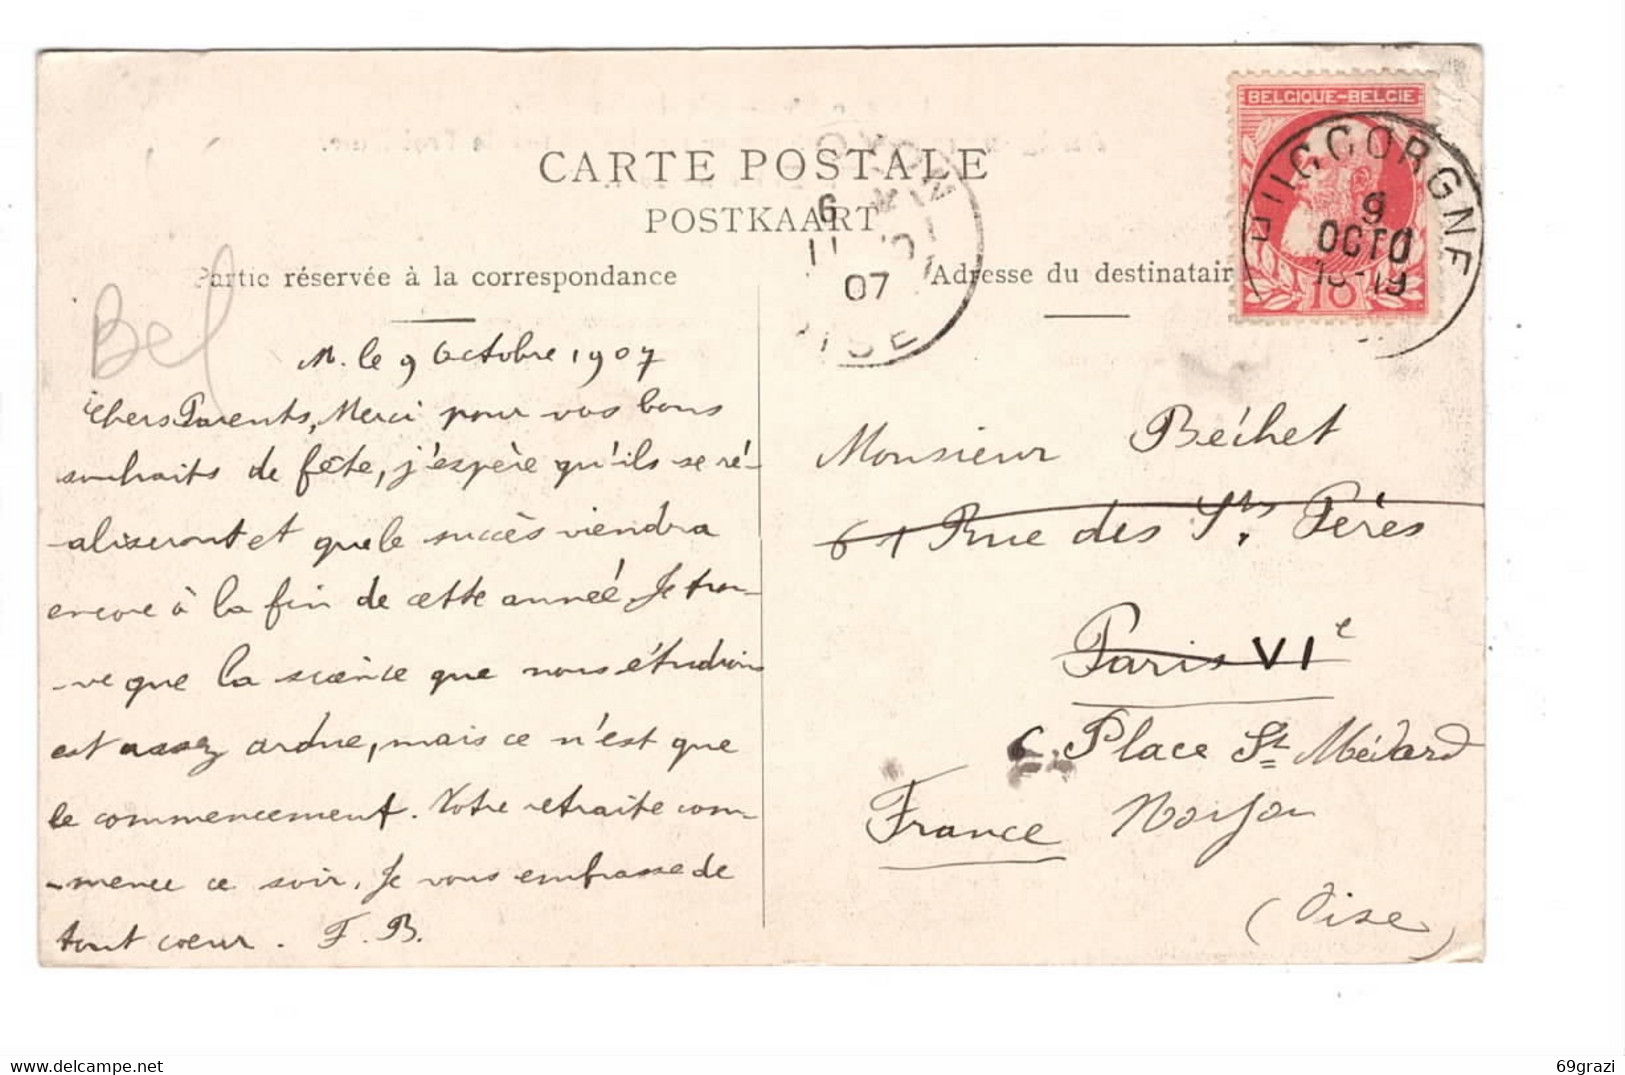 CARTE POSTALE
POSTKAART
Partie réservée à la correspondance
Adresse du destinatair
BELGIQUE-BELGIE
10
9
OCTO
6
07
OISE
Bel
M. le 9 Octobre 1907
Chers Parents, Merci pour vos bons
souhaits de fête, j'espère qu'ils se ré-
-aliseront et que le succès viendra
encore à la fin de cette année. Je trou-
-ve que la science que nous étudions
est assez ardue, mais ce n'est que
le commencement. Notre retraite com-
-mence ce soir. Je vous embrasse de
tout coeur. F. B.
Monsieur Béchet
61 Rue des Sts Pères
Paris VIe
6 Place St Médard
France Noyon
(Oise)
69grazi